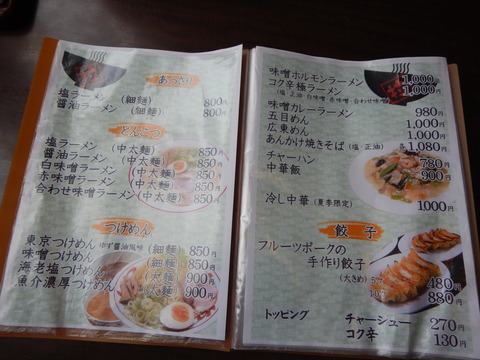 あっさり
塩ラーメン (細麺) 800円
醤油ラーメン (細麺) 800円
とんこつ
塩ラーメン (中太麺) 850円
醤油ラーメン (中太麺) 850円
白味噌ラーメン (中太麺) 850円
赤味噌ラーメン (中太麺) 850円
合わせ味噌ラーメン (中太麺) 850円
つけめん
東京つけめん ゆず醤油風味 (細麺) 850円
味噌つけめん (細麺) 850円
海老塩つけめん (中太麺) 900円
魚介濃厚つけめん (中太麺) 900円
味噌ホルモンラーメン 1,000円
コク辛極ラーメン 1,000円
(塩・正油・白味噌・赤味噌・合わせ味噌)
味噌カレーラーメン 980円
五目めん 1,000円
広東めん 1,000円
あんかけ焼きそば (塩・正油) 各1,080円
チャーハン 780円
中華飯 900円
冷し中華 (夏季限定) 1000円
餃子
フルーツポークの
手作り餃子
(大きめ) 5ケ 480円
880円
トッピング チャーシュー 270円
コク辛 130円